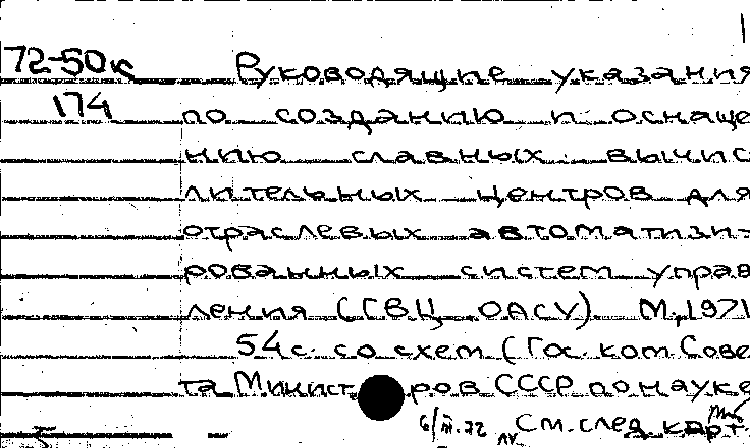 72-50к Руководящие указания
174 по созданию и оснаще
нию славных вычис
лительных центров для
отраслевых автоматизи-
рованных систем управ
ления (ГВЦ ОАСУ). М., 1971
54 с. со схем (Гос. ком Сове
та Минист ров СССР по науке
См. след. карт